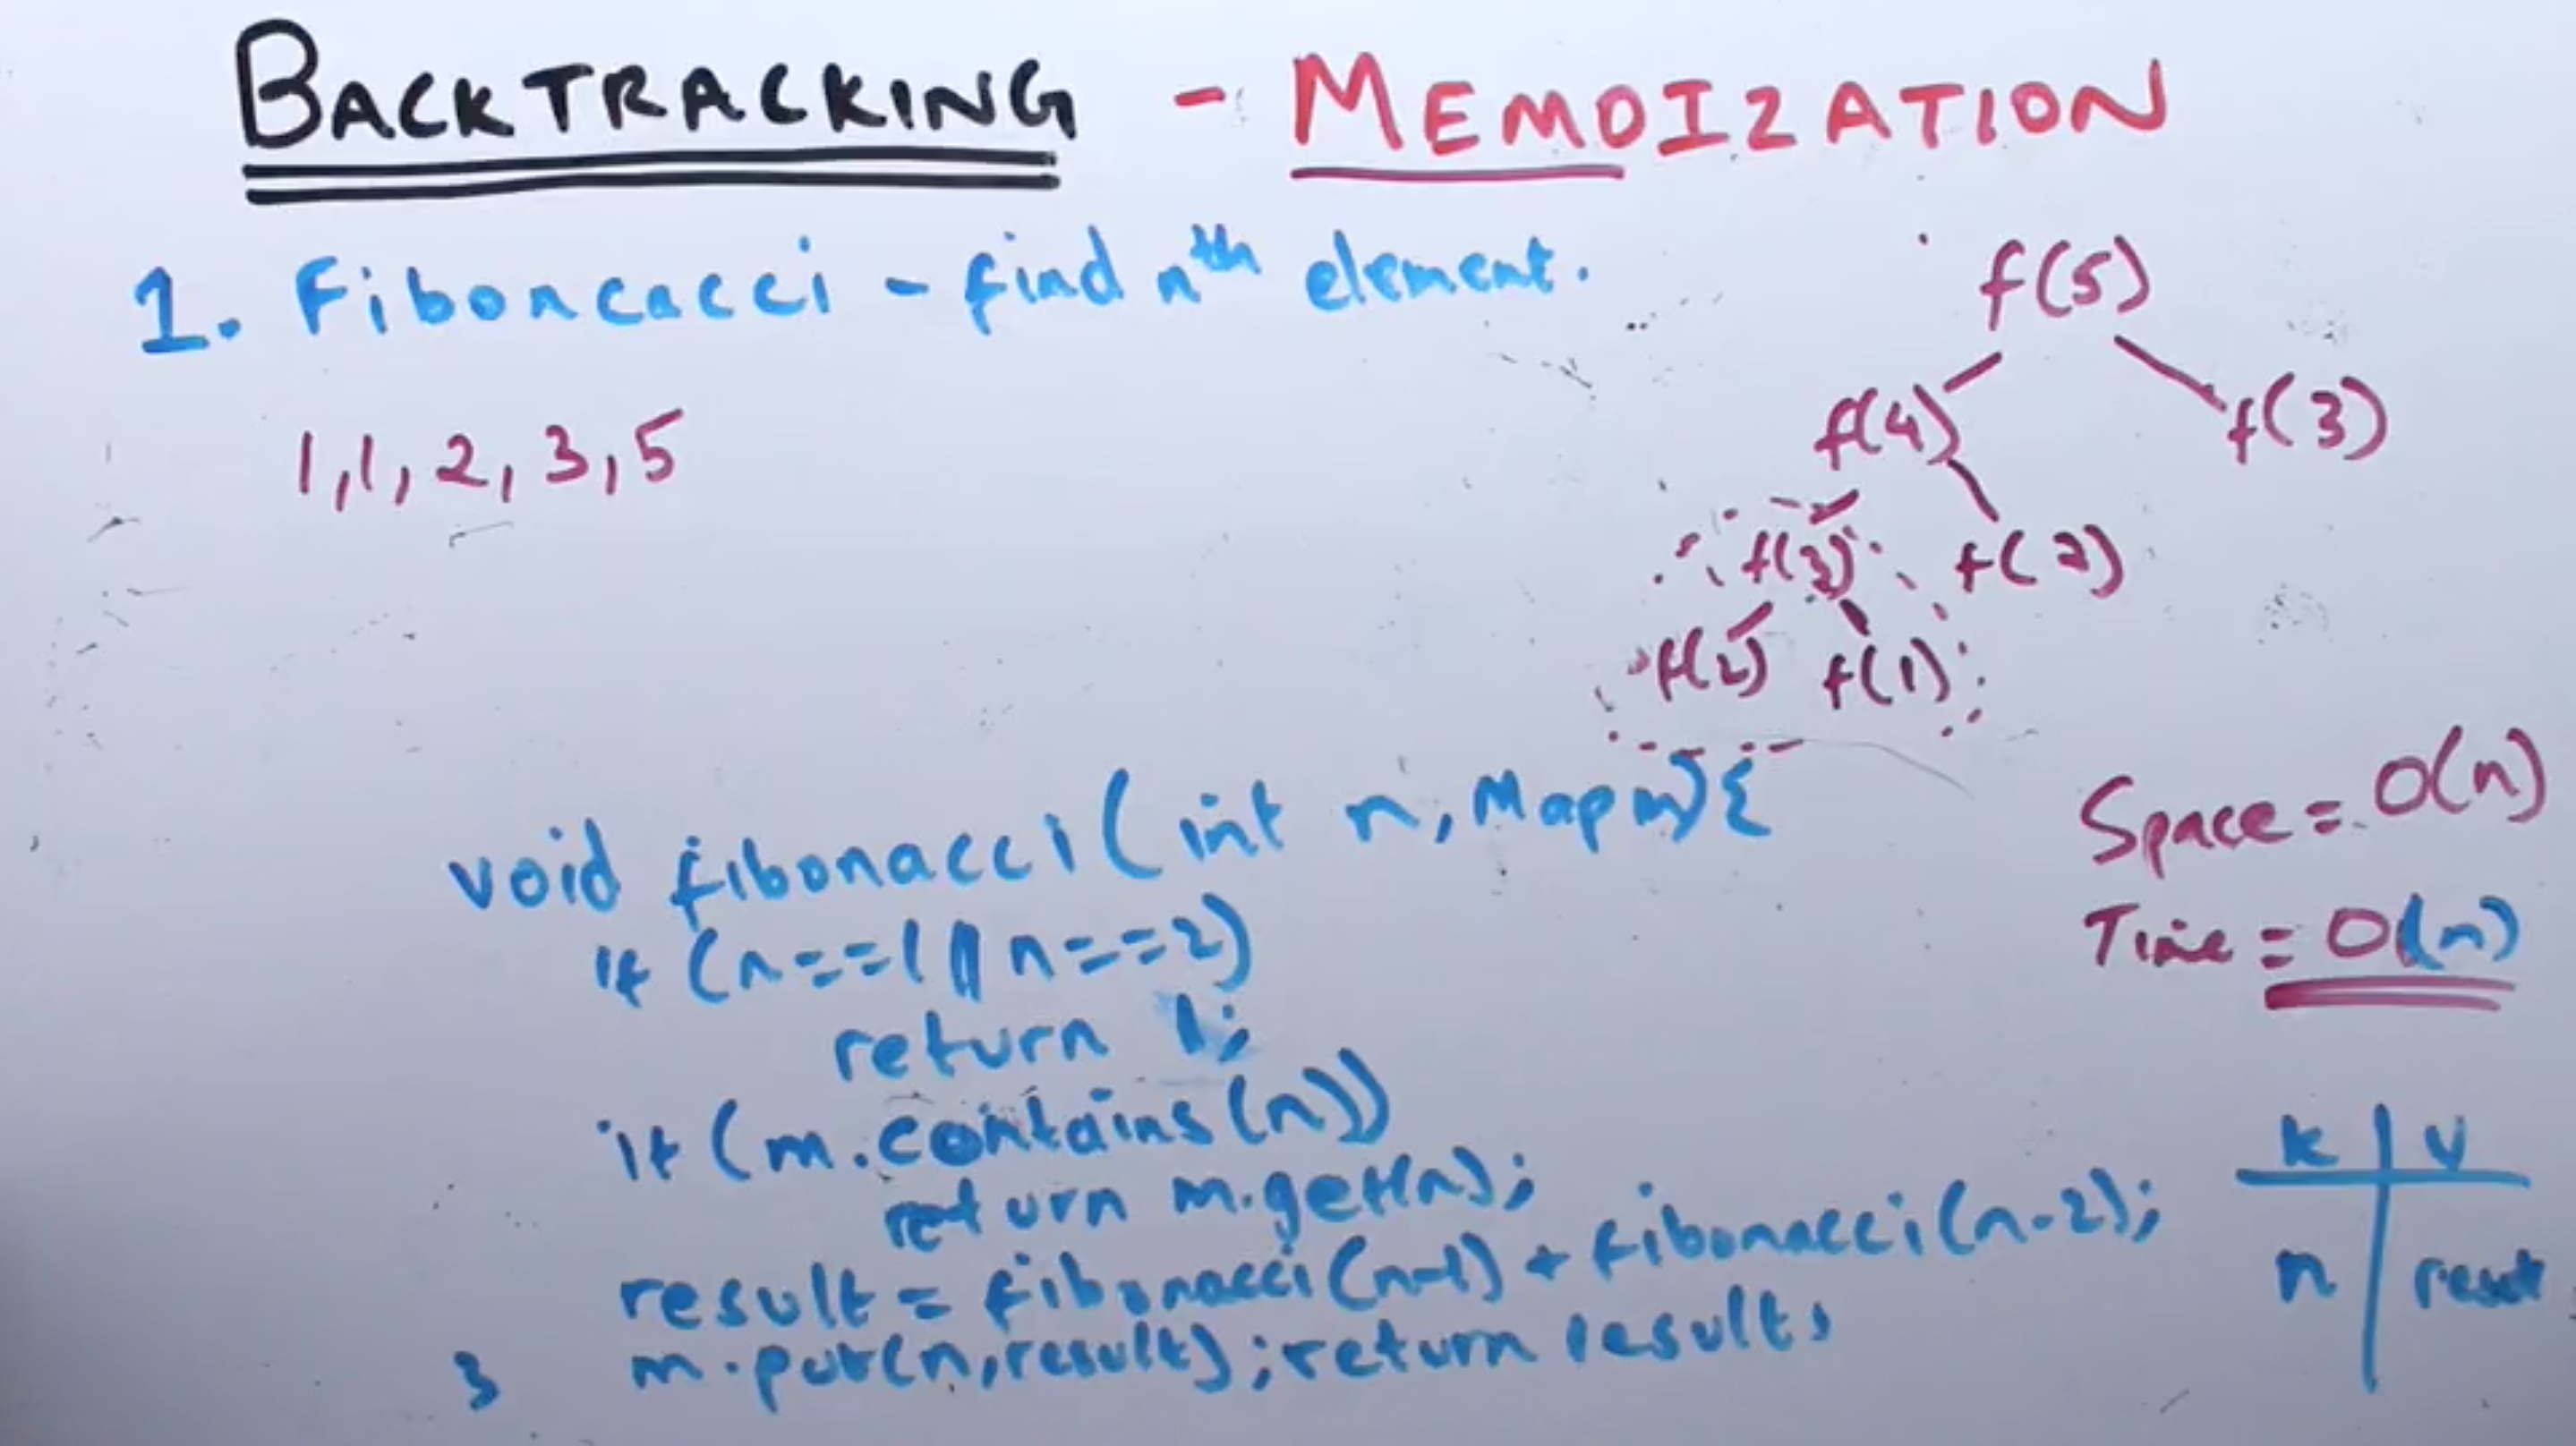 BACKTRACKING - MEMOIZATION
1. Fiboncacci - find nth element.
1,1, 2, 3, 5
f(5)
f(4) f(3)
f(3) f(2)
f(2) f(1)
void fibonacci(int n, Map m){
if (n==1 || n==2)
return 1;
if (m.contains(n))
return m.get(n);
result = fibonacci(n-1) + fibonacci(n-2);
m.put(n,result); return result;
}
Space = O(n)
Time = O(n)
k v
n result